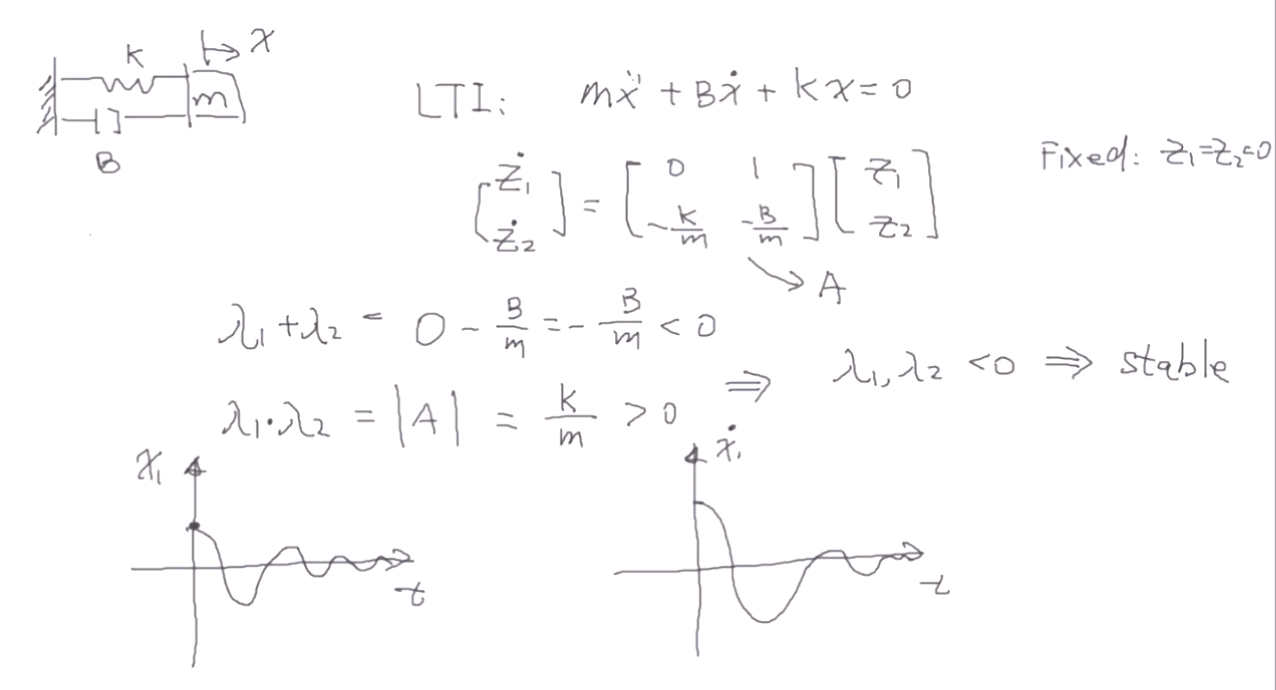 K x
m
B
LTI: mẍ + Bẋ + kx = 0
Fixed: z₁=z₂=0
[ż₁ ż₂] = [0 1 -k/m -B/m] [z₁ z₂]
→ A
λ₁ + λ₂ = 0 - B/m = - B/m < 0
λ₁·λ₂ = |A| = k/m > 0
⇒ λ₁, λ₂ < 0 ⇒ stable
x₁
t
ẋ₁
t